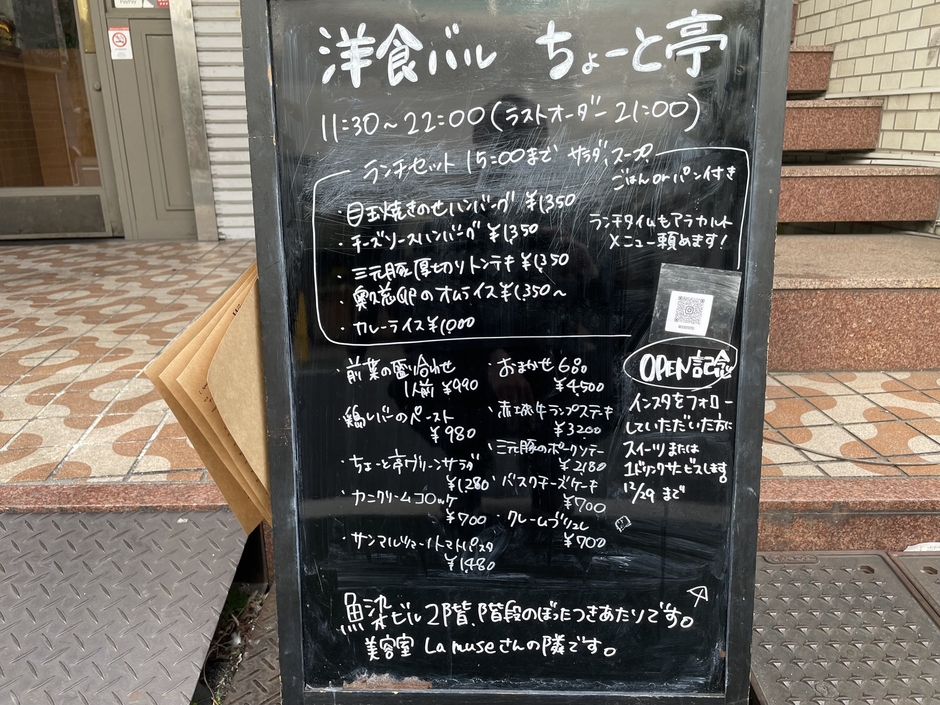 洋食バル ちょーと亭
11:30~22:00(ラストオーダー 21:00)
ランチセット 15:00まで サラダ、スープ
ごはんorパン付き
・目玉焼きのせハンバーグ ¥1350
・チーズソースハンバーグ ¥1350
・三元豚厚切りトンテキ ¥1350
・奥久慈卵のオムライス¥1350~
・カレーライス¥1000
ランチタイムもアラカルト
メニュー頼めます!
・前菜の盛り合わせ
1人前 ¥990
・鶏レバーのペースト
¥980
・ちょーと亭グリーンサラダ
¥1280
・カニクリームコロッケ
¥700
・サンマルツァーノトマトパスタ
¥1480
・おまかせ
¥4,500
・赤城牛ランプステーキ
¥3200
・三元豚のポークソテー
¥2180
・バスクチーズケーキ
¥700
・クレームブリュレ
¥700
OPEN記念
インスタをフォロー
していただいた方に
スイーツまたは
1ドリンクサービスします。
12/29 まで
魚染ビル2階、階段のぼったつきあたりです。
美容室 La museさんの隣です。